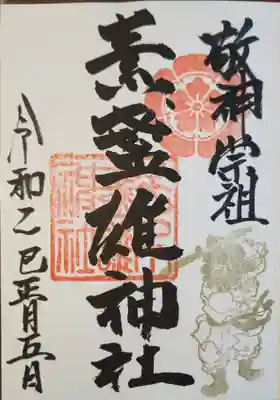 敬神崇祖
素盞雄神社
令和乙巳正月五日